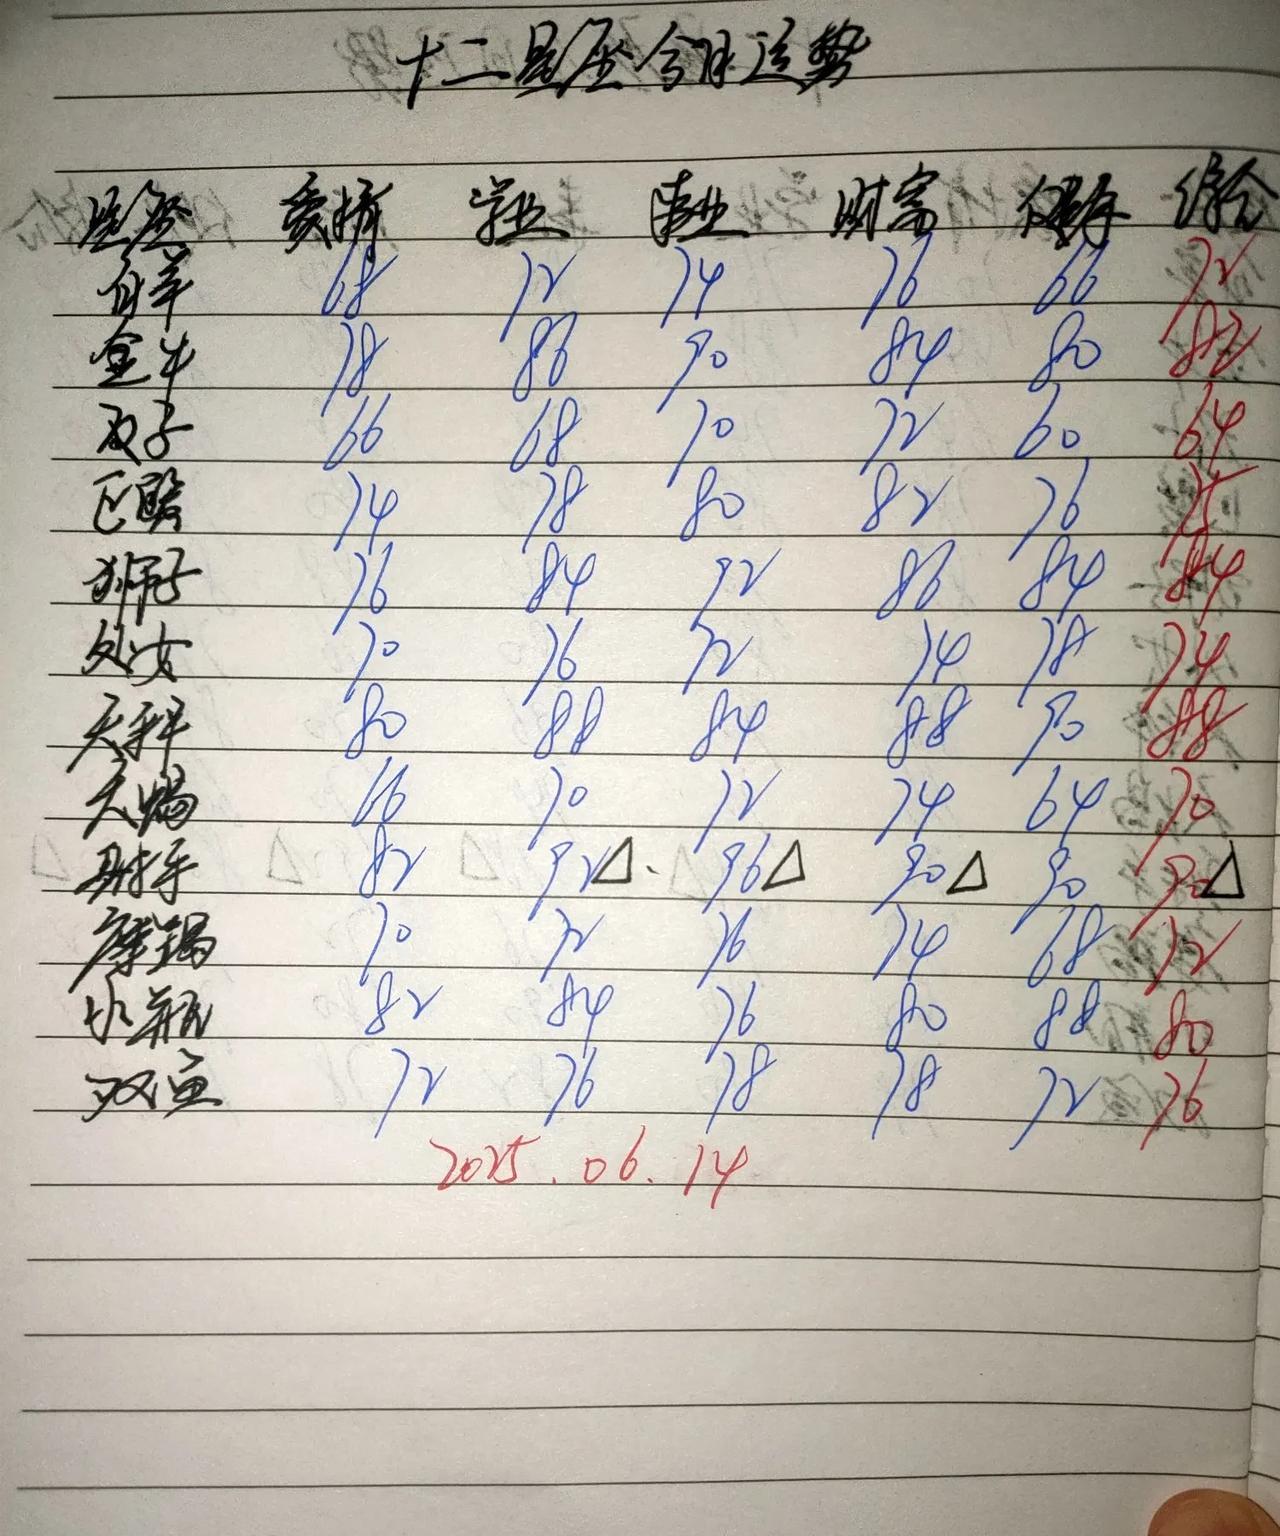 十二星座今日运势
星座 爱情 学业 事业 财富 健康 综合
白羊 68 72 74 76 66 72
金牛 78 86 90 84 80 82
双子 66 68 70 72 60 64
巨蟹 74 78 80 82 76 75
狮子 76 84 92 86 84 84
处女 70 76 72 74 78 74
天秤 80 88 84 88 90 88
天蝎 66 70 72 74 64 70
射手 82 92△ 96△ 90△ 90 90△
摩羯 70 72 76 74 68 72
水瓶 82 84 76 80 88 80
双鱼 72 76 78 78 72 76
2025.06.14